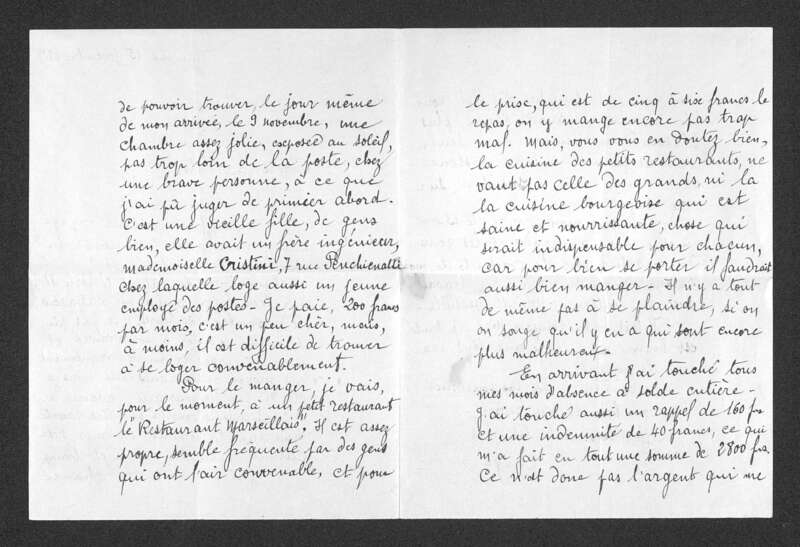 de pouvoir trouver, le jour même
de mon arrivée, le 9 novembre, une
chambre assez jolie, exposée au soleil,
pas trop loin de la poste, chez
une brave personne, à ce que
j'ai pû juger de primeer abord.
C'est une vieille fille, de gens
bien, elle avait un frère ingénieur,
mademoiselle Cristini, 7 rue
chez laquelle loge aussi un jeune
employé des postes - Je paie, 200 francs
par mois, c'est un peu chèr, mais,
à moins, il est difficile de trouver
à se loger convenablement.
Pour le manger, je vais,
pour le moment, à un petit restaurant
le "Restaurant Marseillais". Il est assez
propre, semble fréquenté par des gens
qui ont l'air convenable, et pour
le prise, qui est de cinq à six francs le
repas, on y mange encore pas trop
mal. Mais, vous vous en doutez bien,
la cuisine des petits restaurants, ne
vaut pas celle des grands, ni la
la cuisine bourgeoise qui est
saine et nourrissante, chose qui
serait indispensable pour chacun,
car pour bien se porter il faudrait
aussi bien manger - Il n'y a tout
de même pas à se plaindre, si on
on songe qu'il y en a qui sont encore
plus malheureux -
En arrivant j'ai touché tous
mes mois d'absence à solde entière -
J'ai touché aussi un rappel de 160 frs
et une indemnité de 40 francs, ce qui
m'a fait en tout une somme de 2800 frs.
Ce n'est donc pas l'argent qui me